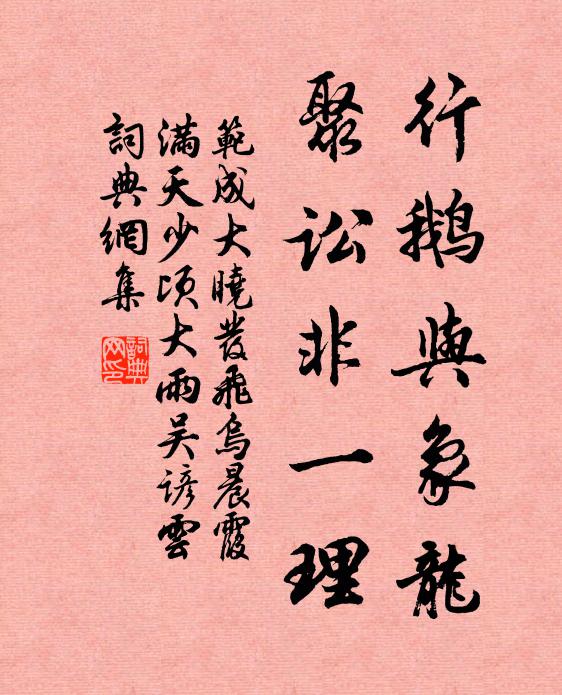 行鹅與象龍
聚訟非一理
範成大曉發飛烏晨霞
滿天少頃大雨吴諺雲
詞典網集
詞典
网印